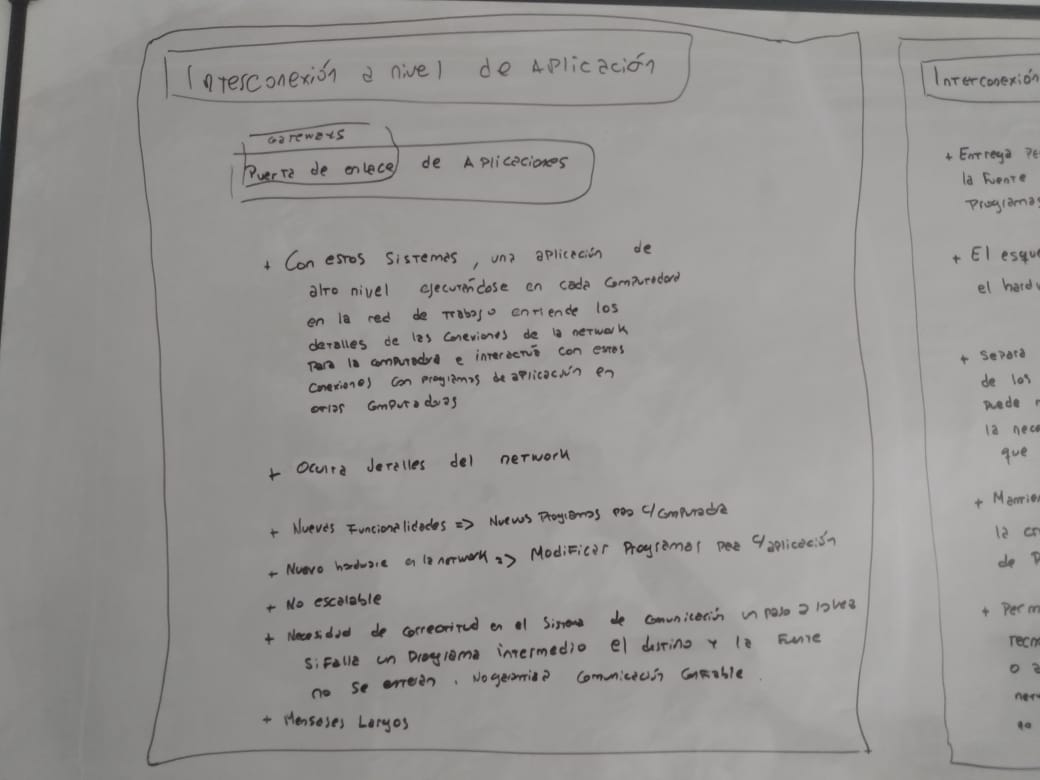 Interconexión a nivel de Aplicación
Gateways
Puerta de enlace de Aplicaciones
+ Con estos sistemas, una aplicación de
alto nivel ejecutándose en cada computadora
en la red de trabajo entiende los
detalles de las conexiones de la network
para la computadora e interactúa con estas
conexiones con programas de aplicación en
otras computadoras
+ Oculta detalles del network
+ Nuevas Funcionalidades => Nuevos Programas para c/computadora
+ Nuevo hardware en la network => Modificar Programas para c/aplicación
+ No escalable
+ Necesidad de correctitud en el sistema de comunicación un paso a la vez
Si falla un programa intermedio el destino y la Fuente
no se enteran. No garantiza comunicación confiable.
+ Mensajes Largos
Interconexión
+ Entrega
la Fuente
Programas
+ El
el
+ Separa
de los
puede
la
que
+
la
de
+
o
no